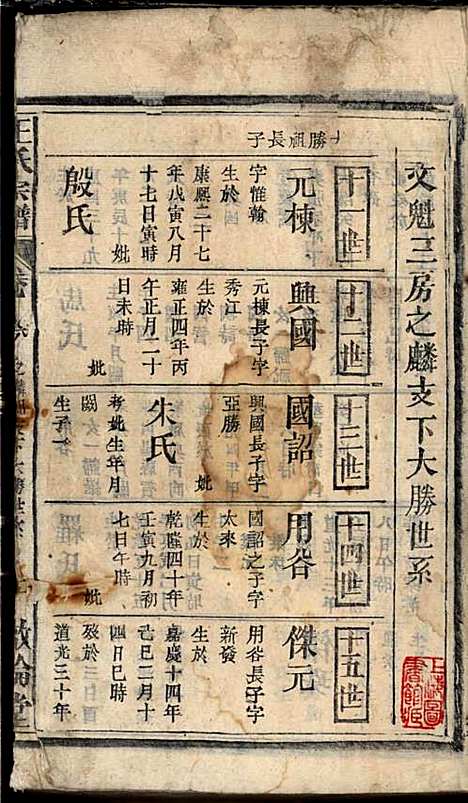 文魁三房之麟支下大勝世系
十一世
十勝祖長子
元棟
字惟翰
生於
康熙二十七
年戊寅八月
十七日寅時
妣
殷氏
十二世
興國
元棟長子字
秀江
生於
雍正四年丙
午正月二十
日未時
妣
十三世
國詔
興國長子字
亞勝
生於
妣
朱氏
考妣生年月
闕
生子一
十四世
用谷
國詔之子字
太來
生於
乾隆四十年
壬寅九月初
七日午時
妣
十五世
傑元
用谷長子字
新發
生於
嘉慶十四年
己巳二月十
四日巳時
歿於
道光三十年
王氏宗譜
敦倫堂
上海圖
書館藏